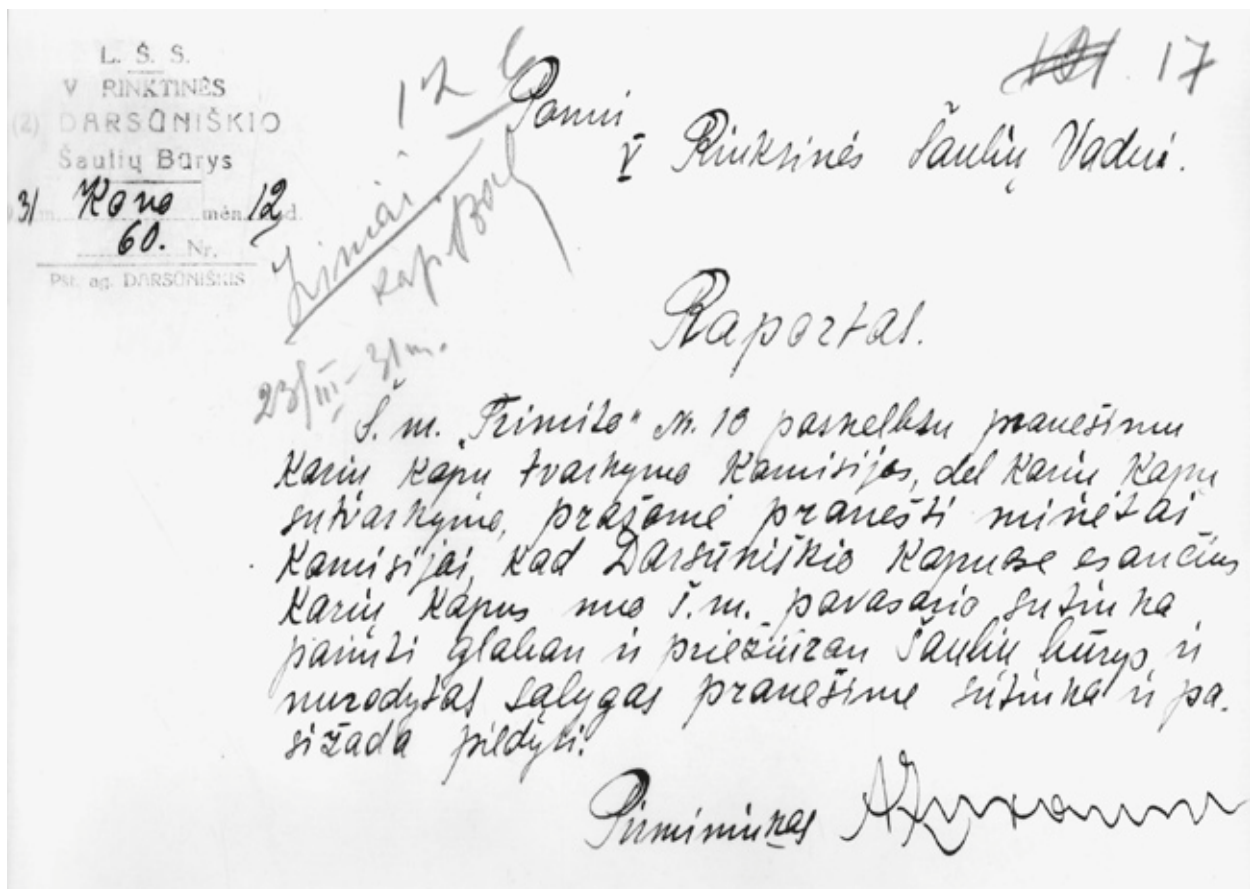 L. Š. S.
V RINKTINĖS
(2) DARSŪNIŠKIO
Šaulių Būrys
31 m. Kovo mėn. 12 d.
60. Nr.
Pšt. ag. DARSŪNIŠKIS
17
Ponui
V Rinktinės Šaulių Vadui.
23/III-31 m.
Raportas.
Š. m. „Trimito" Nr. 10 paskelbtu pranešimu
Karių Kapų tvarkymo Komisijos, del Karių Kapų
sutvarkymo, prašome pranešti minėtai
Komisijai, kad Darsūniškio Kapuose esančius
Karių Kapus nuo š.m. pavasario sutinka
paimti globon ir priežiūron Šaulių būrys, ir
nurodytas sąlygas pranešime sutinka ir pa-
sižada pildyti.
Pirmininkas